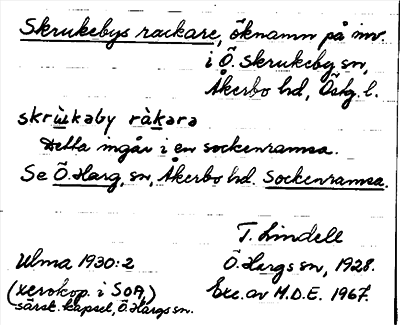 Skrukebys rackare, öknamn på inv.
i Ö. Skrukeby sn,
Åkerbo hd, Östg. l.
skrùkaby ràkara
Detta ingår i en sockenramsa.
Se Ö. Harg, sn, Åkerbo hd. Sockenramsa.
T. Lindell
Ulma 1930:2
Ö. Hargs sn, 1928.
(xerokop. i SOA,)
Exc. av M.D.E. 1967.
särsk. kapsel, Ö. Hargs sn.